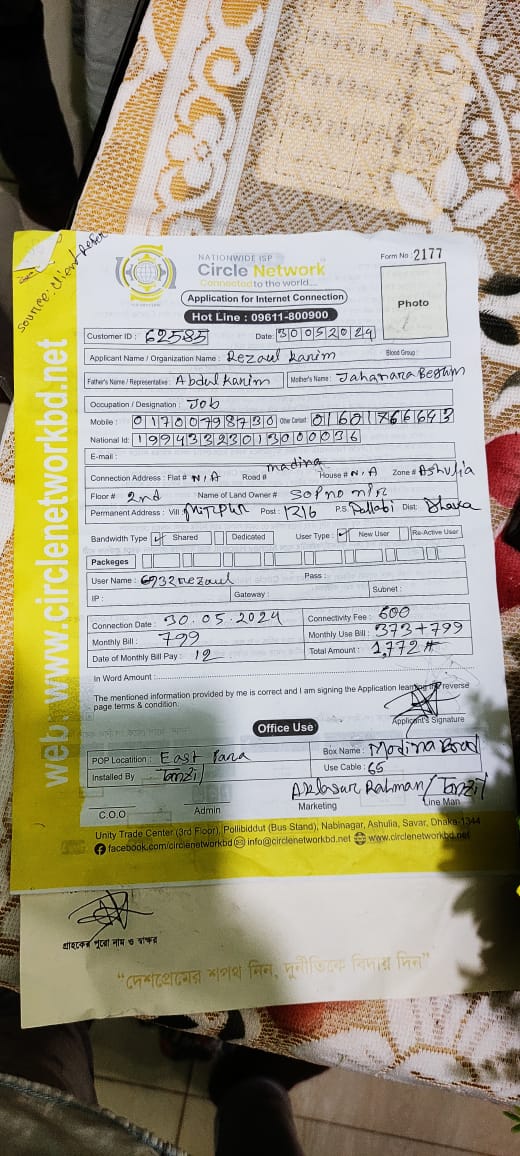 Source: Client Refer
NATIONWIDE ISP
Circle Network
Connected to the world....
Form No. 2177
Application for Internet Connection
Hot Line : 09611-800900
Photo
Customer ID : 62585 Date: 30052024
Applicant Name / Organization Name : Rezaul Karim Blood Group :
Father's Name / Representative : Abdul Karim Mother's Name : Jahanara Begum
Occupation / Designation : Job
Mobile : 01700798730 Other Contact
National Id: 19943323013000036
E-mail :
Connection Address : Flat # N/A Road # madina House # N/A Zone # Ashulia
Floor # 2nd Name of Land Owner # Sopno
Permanent Address : Vill Mirpur Post : 1216 P.S. Pallabi Dist: Dhaka
Bandwidth Type Shared Dedicated User Type : New User Re-Active User
Packeges
User Name : 6932rezaul Pass :
IP : Gateway : Subnet :
Connection Date : 30.05.2024 Connectivity Fee : 600
Monthly Bill : 799 Monthly Use Bill : 373+799
Date of Monthly Bill Pay : 12 Total Amount : 1,772
In Word Amount :
The mentioned information provided by me is correct and I am signing the Application learning the reverse
page terms & condition.
Applicant's Signature
Office Use
POP Locatition : East Para Box Name : Modina Road
Installed By Tanzil Use Cable : 65
Rahman / Tanzil
C.O.O Admin Marketing Line Man
Unity Trade Center (3rd Floor), Pollibiddut (Bus Stand), Nabinagar, Ashulia, Savar, Dhaka-1344
facebook.com/circlenetworkbd info@circlenetworkbd.net www.circlenetworkbd.net
web: www.circlenetworkbd.net
গ্রাহকের পুরো নাম ও স্বাক্ষর
“দেশপ্রেমের শপথ নিন, দুর্নীতিকে বিদায় দিন”